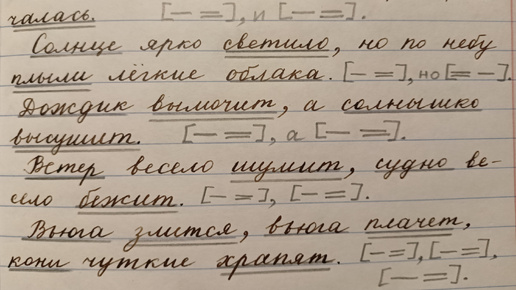 чалась. [— =], и [— =].
Солнце ярко светило, но по небу
плыли лёгкие облака. [— =], но [= —].
Дождик вымочит, а солнышко
высушит. [— =], а [— =].
Ветер весело шумит, судно ве-
село бежит. [— =], [— =].
Вьюга злится, вьюга плачет,
кони чуткие храпят. [— =], [— =],
[— =].